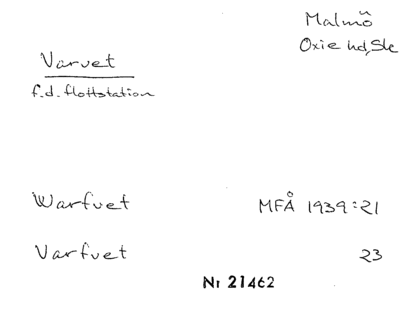 Malmö
Oxie hd, Sk
Varvet
f.d. flottstation
Warfvet MFÅ 1939:21
Varfvet 23
Nr 21462